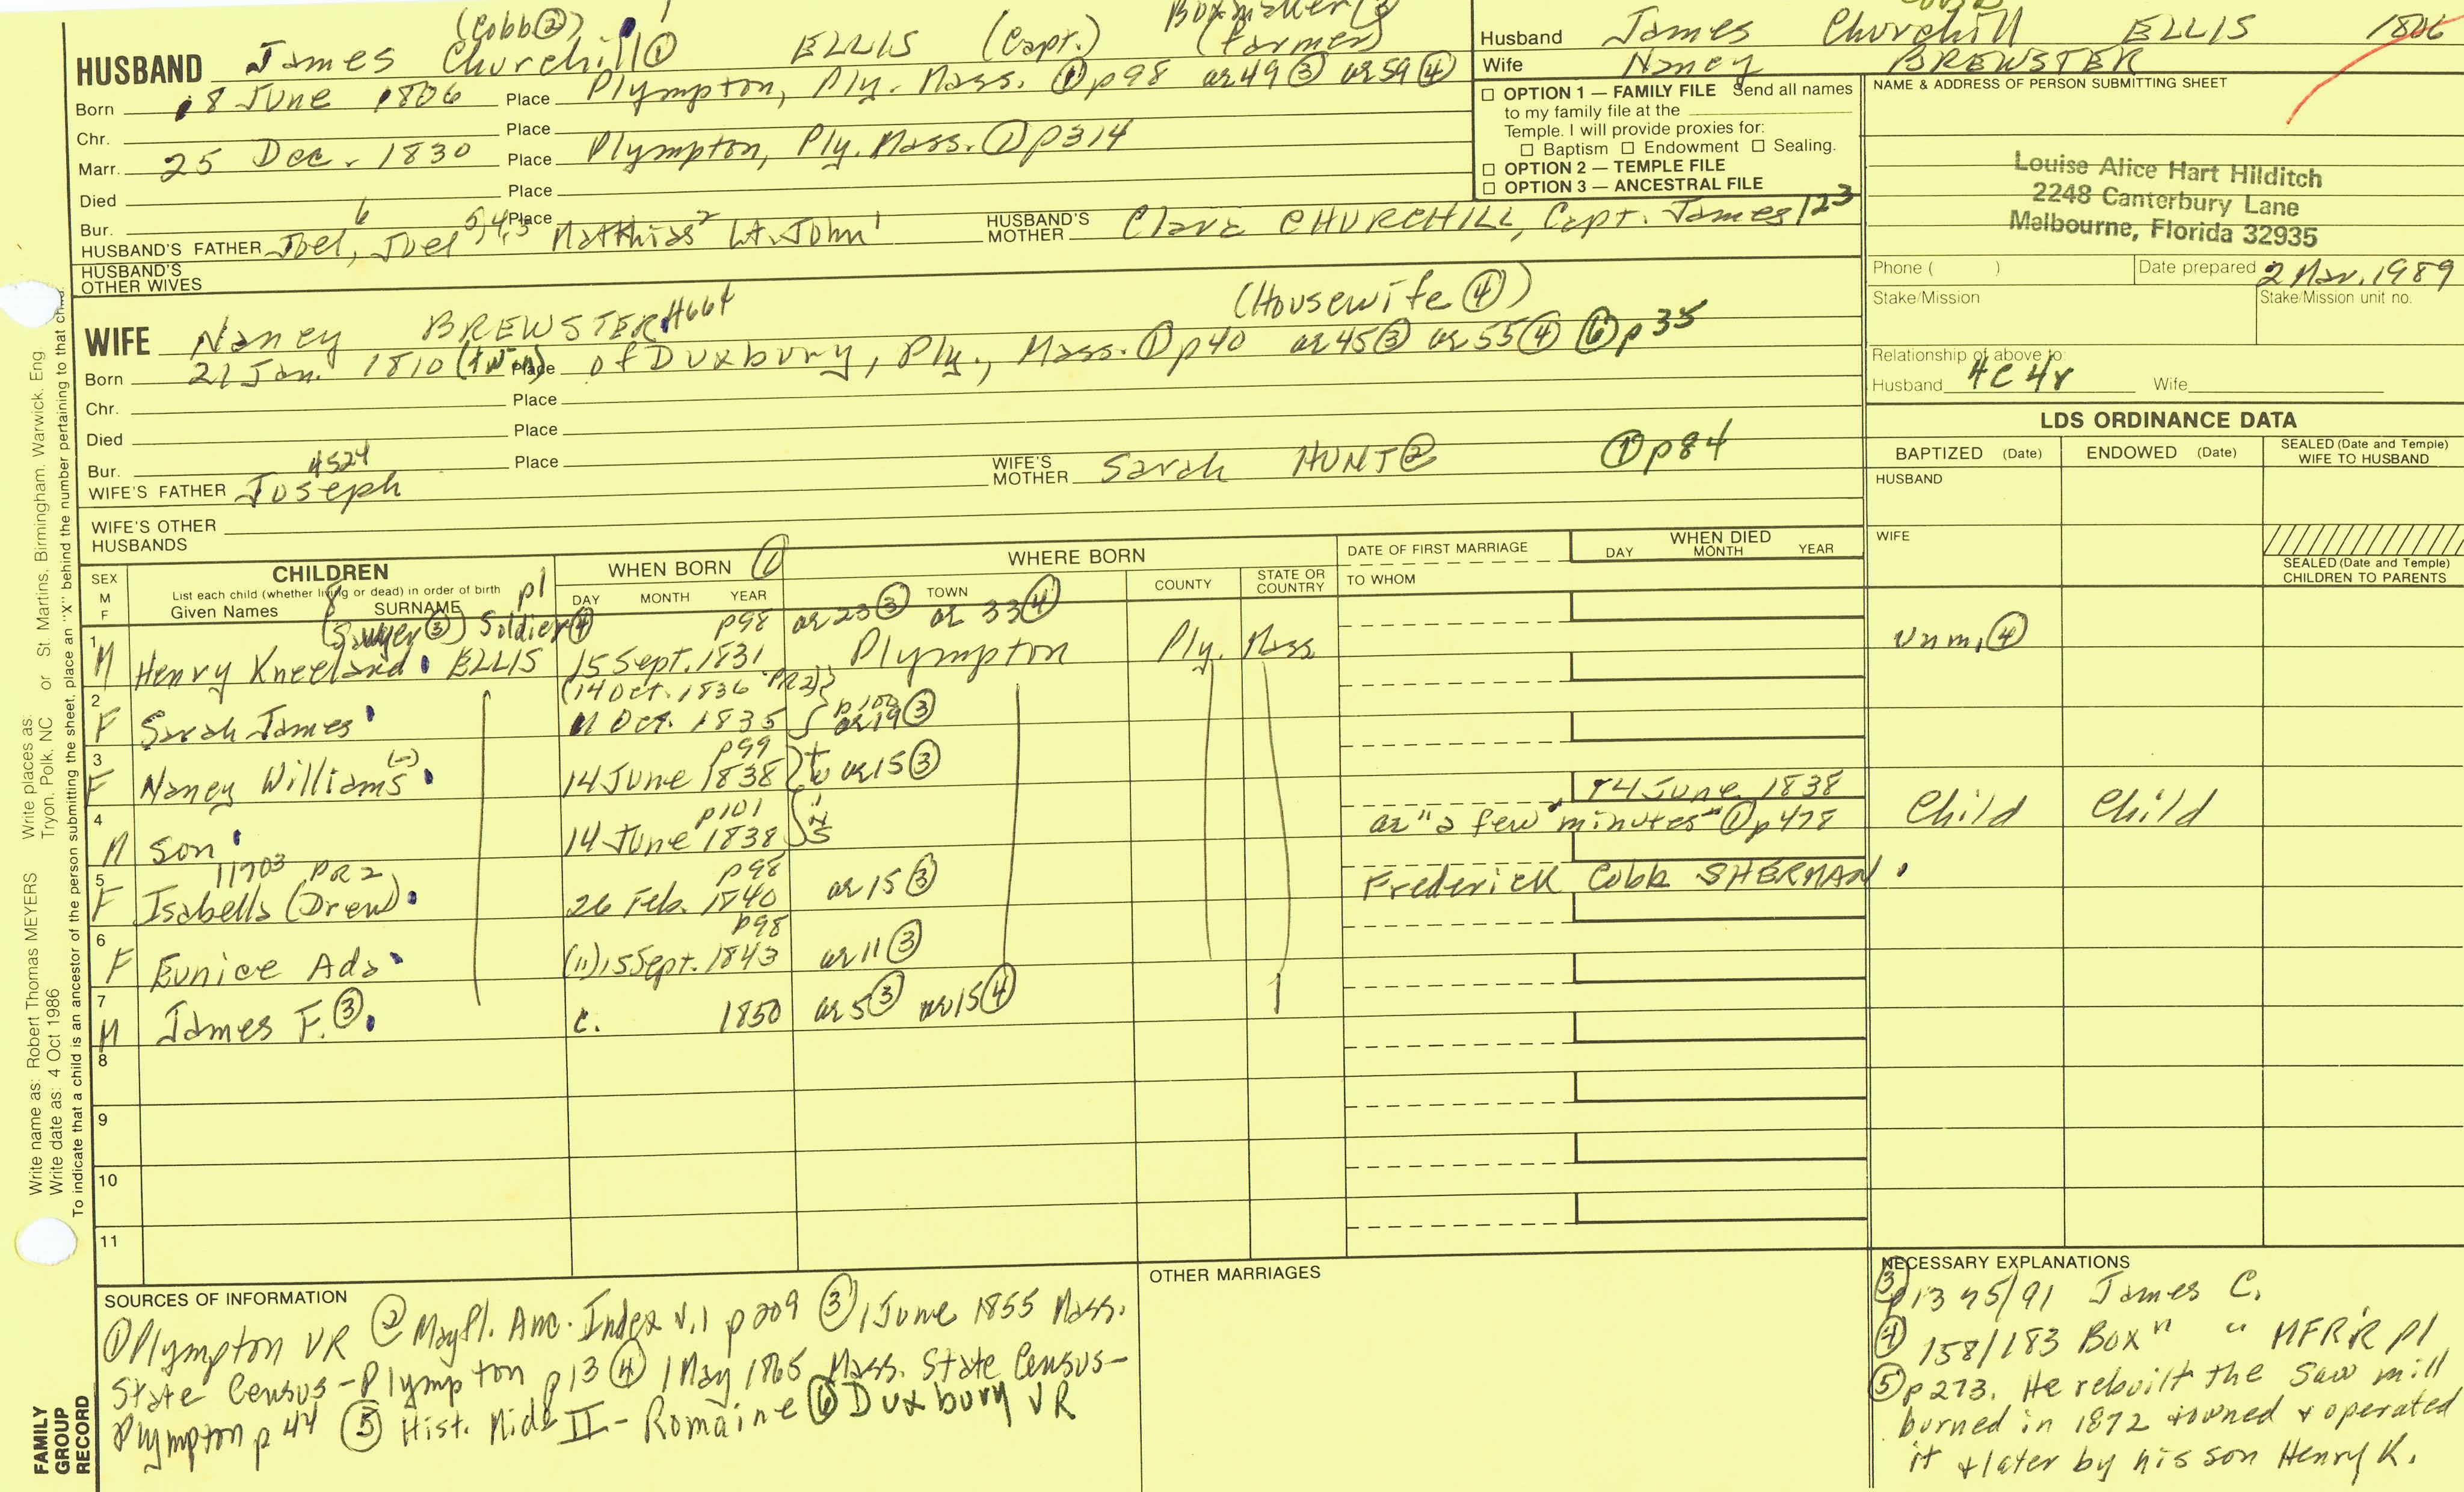 (Cobb②) Boxmaker ③
HUSBAND James Churchill① ELLIS (Capt.) (farmer)
Born 18 June 1806 Place Plympton, Ply. Mass. ①p98 ae49③ ae59④
Chr. Place
Marr. 25 Dec. 1830 Place Plympton, Ply. Mass. ①p314
Died Place
Bur. Place
HUSBAND'S FATHER Joel, Joel⁶ 5,4,3 Matthias² Lt. John¹ HUSBAND'S MOTHER Clara CHURCHILL, Capt. James 123
HUSBAND'S OTHER WIVES
Husband James Churchill ELLIS 1806
Wife Nancy BREWSTER
☐ OPTION 1 — FAMILY FILE Send all names
to my family file at the
Temple. I will provide proxies for:
☐ Baptism ☐ Endowment ☐ Sealing.
☐ OPTION 2 — TEMPLE FILE
☐ OPTION 3 — ANCESTRAL FILE
NAME & ADDRESS OF PERSON SUBMITTING SHEET
Louise Alice Hart Hilditch
2248 Canterbury Lane
Melbourne, Florida 32935
Phone ( ) Date prepared 2 Mar. 1989
Stake/Mission Stake/Mission unit no.
Relationship of above to:
Husband 4C4r Wife
WIFE Nancy BREWSTER (Housewife④)
Born 21 Jan. 1810 (twn) Place of Duxbury, Ply., Mass. ①p40 ae45③ ae55④ ⑥p35
Chr. Place
Died Place
Bur. Place
4524
WIFE'S FATHER Joseph WIFE'S MOTHER Sarah HUNT② ①p84
WIFE'S OTHER HUSBANDS
LDS ORDINANCE DATA
BAPTIZED (Date) ENDOWED (Date) SEALED (Date and Temple) WIFE TO HUSBAND
HUSBAND
WIFE
SEALED (Date and Temple) CHILDREN TO PARENTS
SEX M F
CHILDREN
List each child (whether living or dead) in order of birth
Given Names SURNAME p1
WHEN BORN ①
DAY MONTH YEAR
WHERE BORN
TOWN COUNTY STATE OR COUNTRY
DATE OF FIRST MARRIAGE
TO WHOM
WHEN DIED
DAY MONTH YEAR
(Sawyer③) Soldier④ p98 ae23③ ae 33④
1 M Henry Kneeland ELLIS 15 Sept. 1831 Plympton Ply. Mass Unm.④
(14 Oct. 1836 PR2)
2 F Sarah James 11 Oct. 1835 p100 ae19③
p99
3 F Nancy Williams (-) 14 June 1838 ae15③
p101 14 June 1838
4 M son 14 June 1838 ae "a few minutes" ①p478 Child Child
11703 PR2 p98
5 F Isabella (Drew) 26 Feb. 1840 ae15③ Frederick Cobb SHERMAN
p98
6 F Eunice Ada (11) 15 Sept. 1843 ae11③
7 M James F.③ c. 1850 ae5③ ae15④
8
9
10
11
SOURCES OF INFORMATION
①Plympton VR ② Mayfl. Anc. Index v.1 p209 ③ 1 June 1855 Mass.
State Census-Plympton p13 ④ 1 May 1865 Mass. State Census-
Plympton p44 ⑤ Hist. Midd II- Romaine ⑥ Duxbury VR
OTHER MARRIAGES
NECESSARY EXPLANATIONS
③p13 75/91 James C.
④ 158/183 Box" " MFR'R p1
⑤p273. He rebuilt the Saw mill
burned in 1872 + owned + operated
it + later by his son Henry K.
FAMILY GROUP RECORD
Write name as: Robert Thomas MEYERS Write places as: Tryon, Polk, NC or St. Martins, Birmingham, Warwick, Eng.
Write date as: 4 Oct 1986
To indicate that a child is an ancestor of the person submitting the sheet, place an "X" behind the number pertaining to that child.